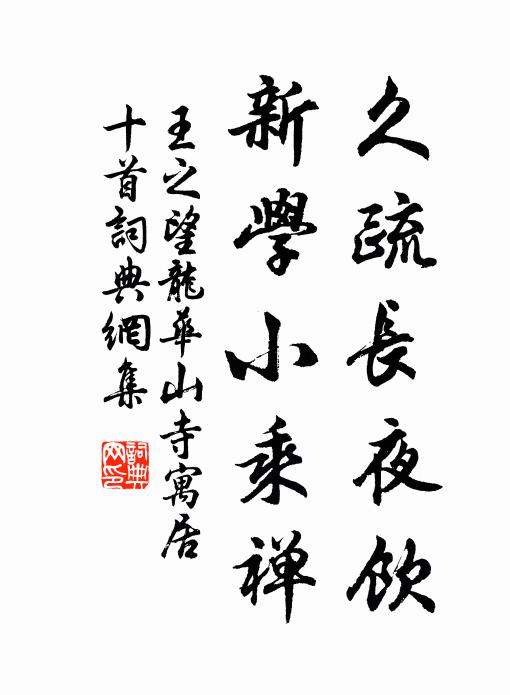 久疏長夜飲
新學小乘禅
王之望龍華山寺寓居
十首詞典網集
詞典网印